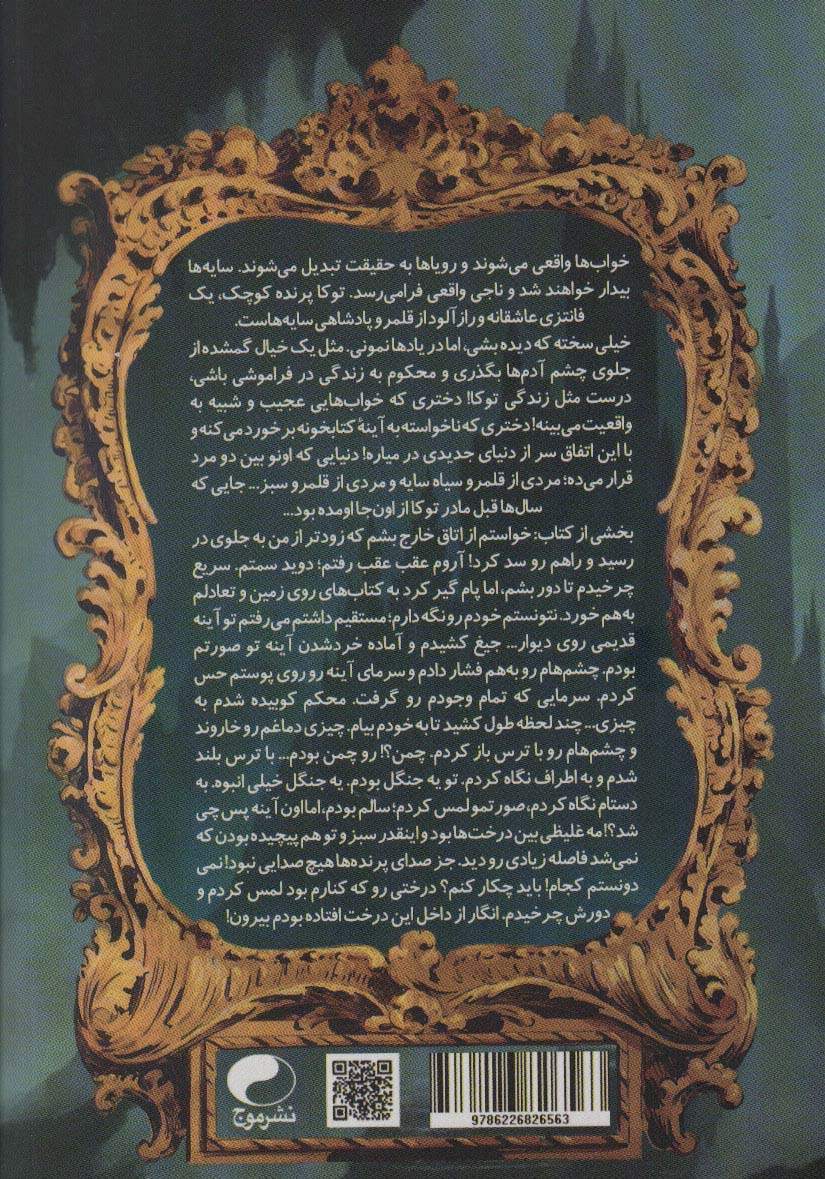 خواب‌ها واقعی می‌شوند و رویاها به حقیقت تبدیل می‌شوند. سایه‌ها
بیدار خواهند شد و ناجی واقعی فرامی‌رسد. توکا پرنده کوچک، یک
فانتزی عاشقانه و رازآلود از قلمرو پادشاهی سایه‌هاست.
خیلی سخته که دیده بشی، اما در یادها نمونی. مثل یک خیال گمشده از
جلوی چشم آدم‌ها بگذری و محکوم به زندگی در فراموشی باشی،
درست مثل زندگی توکا! دختری که خواب‌هایی عجیب و شبیه به
واقعیت می‌بینه! دختری که ناخواسته به آینهٔ کتابخونه برخورد می‌کنه و
با این اتفاق سر از دنیای جدیدی در میاره! دنیایی که اونو بین دو مرد
قرار می‌ده؛ مردی از قلمرو سیاه سایه و مردی از قلمرو سبز... جایی که
سال‌ها قبل مادر توکا از اون‌جا اومده بود...
بخشی از کتاب: خواستم از اتاق خارج بشم که زودتر از من به جلوی در
رسید و راهم رو سد کرد! آروم عقب عقب رفتم؛ دوید سمتم. سریع
چرخیدم تا دور بشم، اما پام گیر کرد به کتاب‌های روی زمین و تعادلم
به‌هم خورد. نتونستم خودم رو نگه دارم؛ مستقیم داشتم می‌رفتم تو آینه
قدیمی روی دیوار... جیغ کشیدم و آماده خردشدن آینه تو صورتم
بودم. چشم‌هام رو به‌هم فشار دادم و سرمای آینه رو روی پوستم حس
کردم. سرمایی که تمام وجودم رو گرفت. محکم کوبیده شدم به
چیزی... چند لحظه طول کشید تا به خودم بیام. چیزی دماغم رو خاروند
و چشم‌هام رو با ترس باز کردم. چمن؟! رو چمن بودم... با ترس بلند
شدم و به اطراف نگاه کردم. تو یه جنگل بودم. یه جنگل خیلی انبوه. به
دستام نگاه کردم، صورتمو لمس کردم؛ سالم بودم، اما اون آینه پس چی
شد؟! مه غلیظی بین درخت‌ها بود و اینقدر سبز و تو هم پیچیده بودن که
نمی‌شد فاصله زیادی رو دید. جز صدای پرنده‌ها هیچ صدایی نبود! نمی
دونستم کجام! باید چکار کنم؟ درختی رو که کنارم بود لمس کردم و
دورش چرخیدم. انگار از داخل این درخت افتاده بودم بیرون!
نشر موج
9786226826563